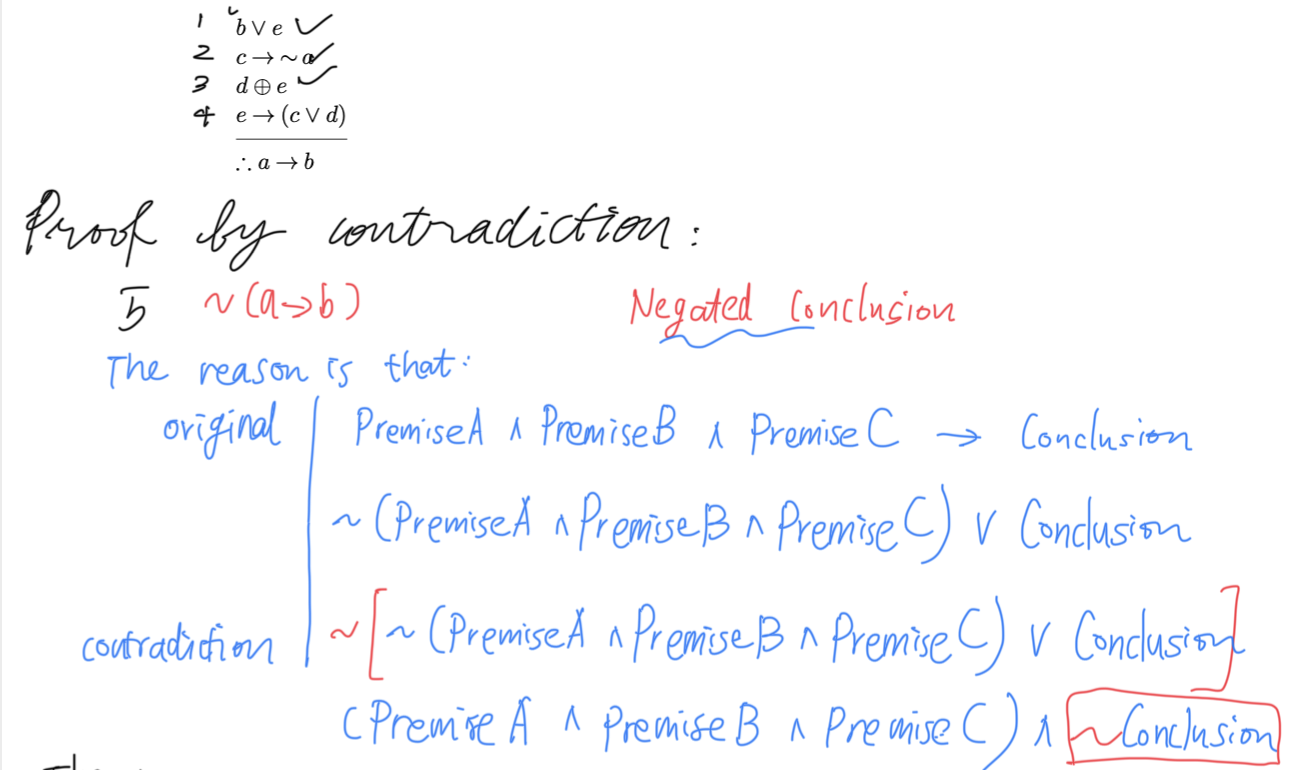 1 b ∨ e ✓
2 c → ~ a ✓
3 d ⊕ e ✓
4 e → (c ∨ d)
∴ a → b
Proof by contradiction:
5 ~(a→b) Negated Conclusion
The reason is that:
original | PremiseA ∧ PremiseB ∧ PremiseC → Conclusion
~(PremiseA ∧ PremiseB ∧ PremiseC) ∨ Conclusion
contradiction | ~[~(PremiseA ∧ PremiseB ∧ PremiseC) ∨ Conclusion]
(PremiseA ∧ PremiseB ∧ PremiseC) ∧ ~Conclusion